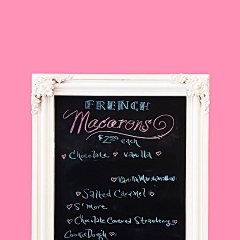 FRENCH
Macarons
$2.00 each
♡ Chocolate ♡ Vanilla ♡
♡ Salted Caramel ♡
♡ S'more
♡ Chocolate Covered Strawberry ♡
Cookie Dough ♡